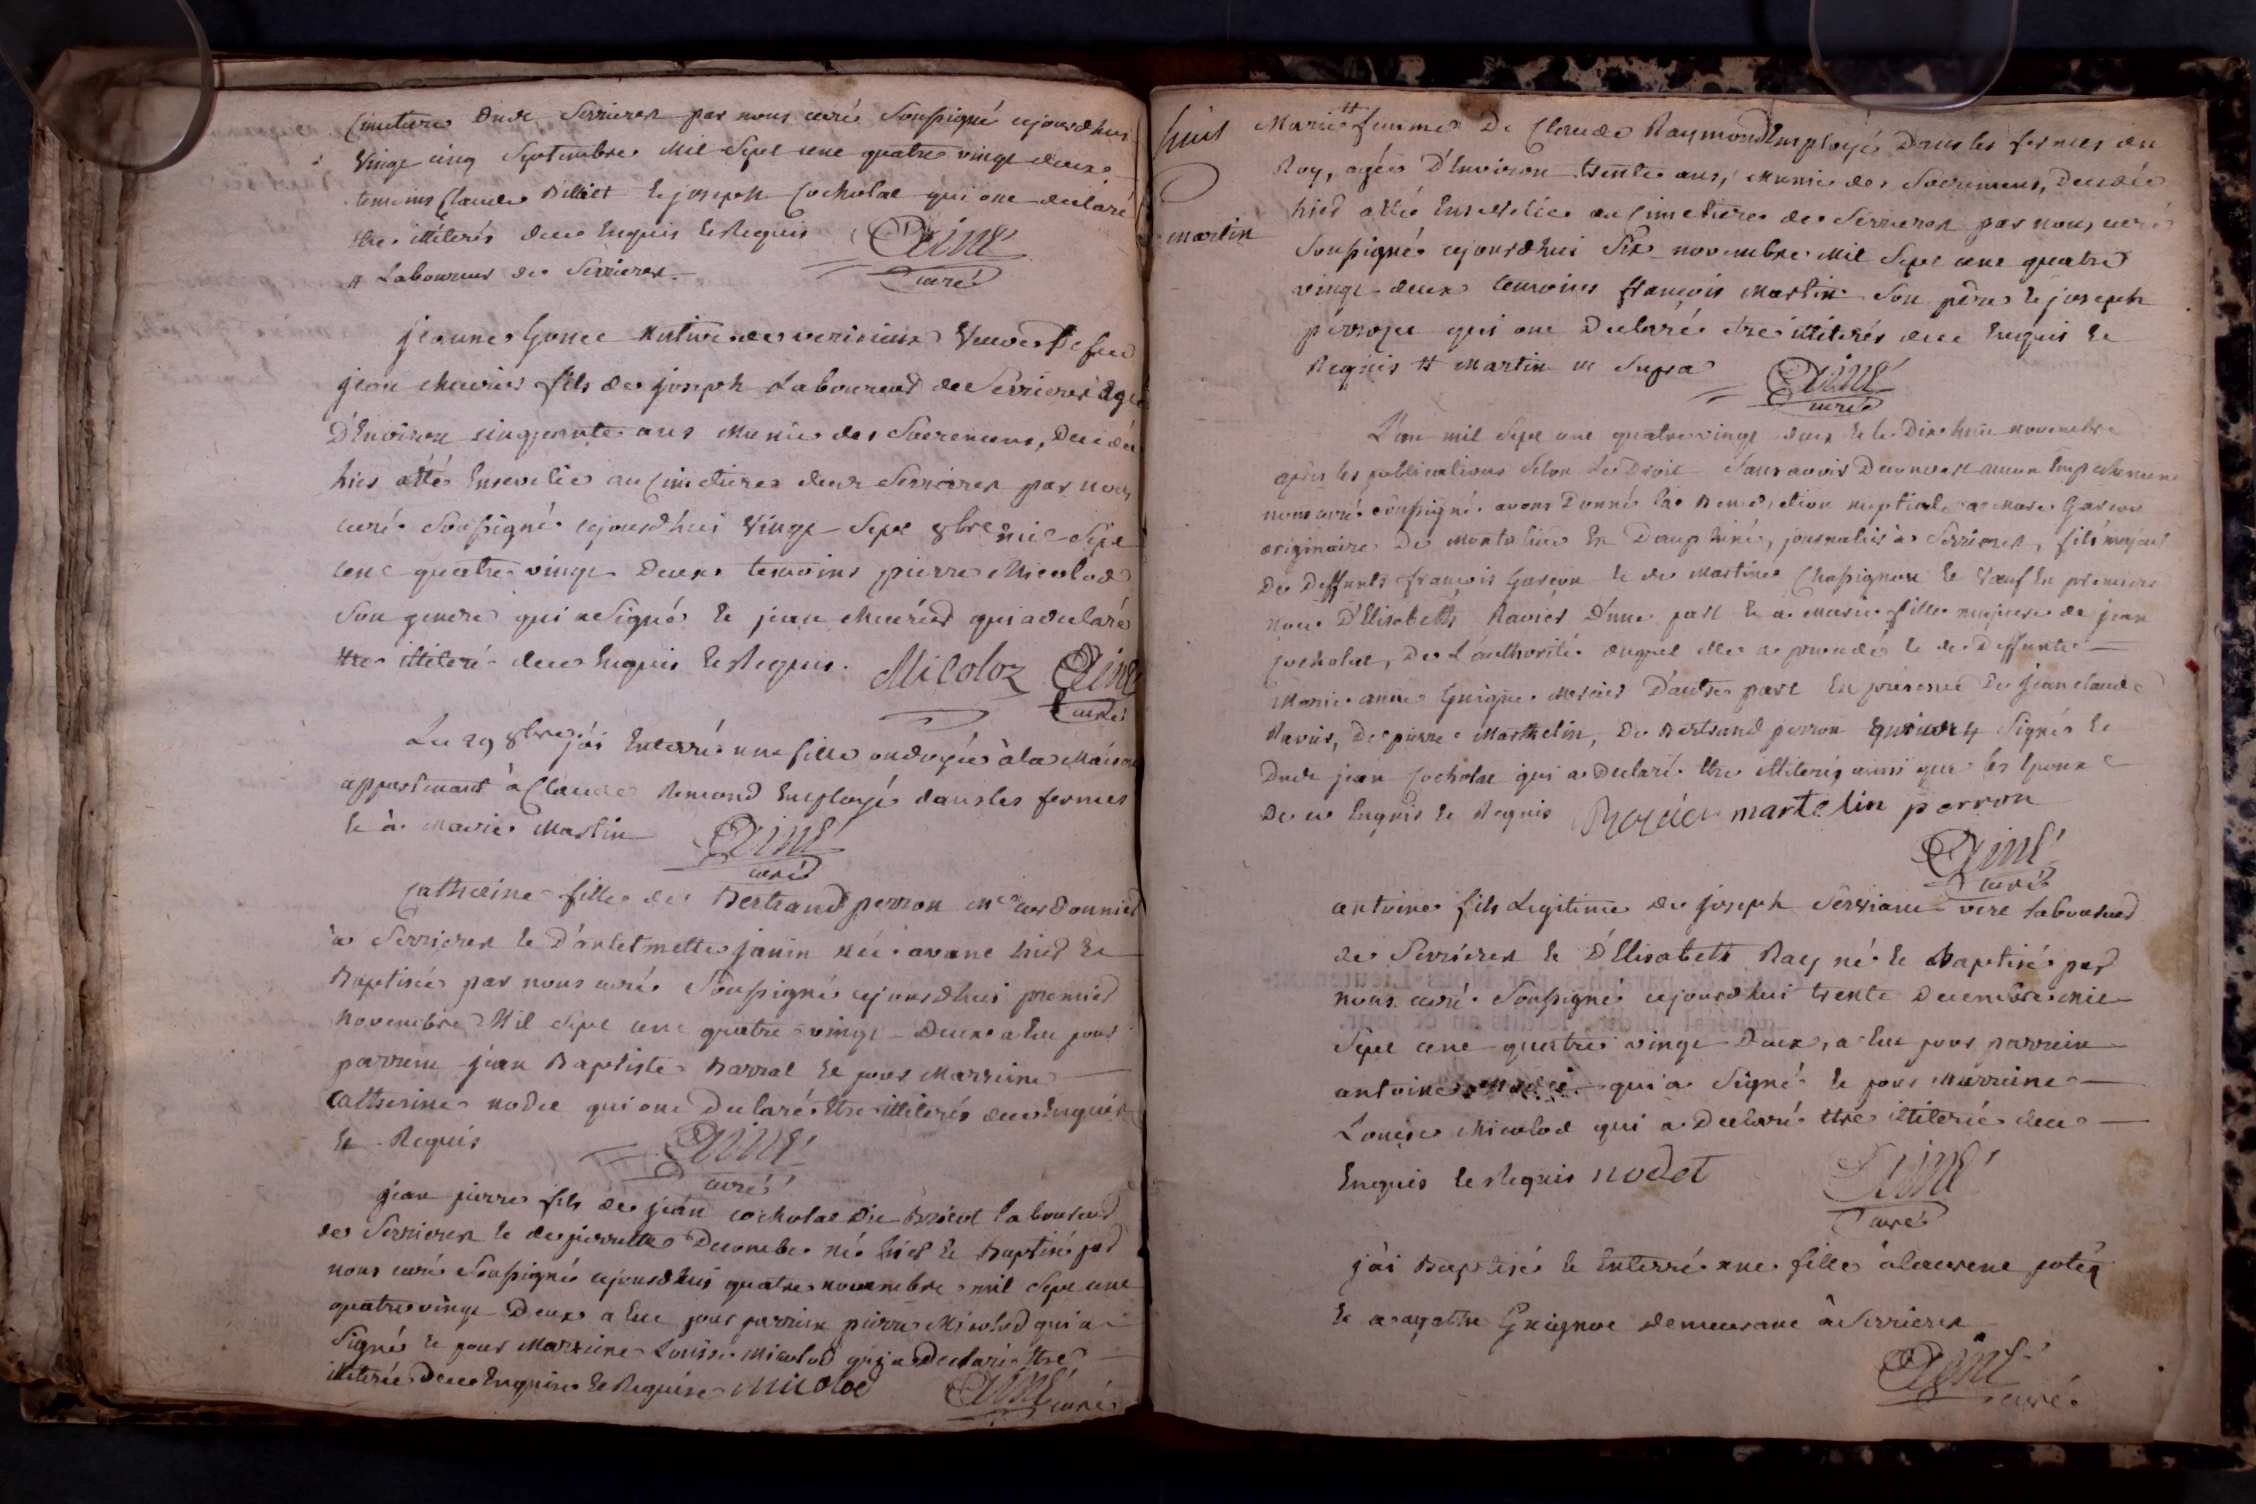 Cimetiere dudt Serrieres par nous curé Soussigné cejourdhui
Vingt cinq Septembre Mil Sept cent quatre vingt deux
temoins Claude Billiet & joseph Cocholat qui ont declaré
Etre illiterés dece Enquis & Requis Aimé
# Laboureur de Serrieres. curé
jeanne Gonet Native de veririeux Veuve De feu
jean Mercier fils de joseph Laboureur de Serrieres agée
D'Environ cinquante ans Munie des Sacremens, Decedée
hier a été Ensevelie au Cimetiere dudt Serrieres par nous
curé Soussigné cejourdhui Vingt Sept 8bre mil Sept
cent quatre vingt Deux temoins pierre Micolod
Son gendre qui a Signé & jean Mercier qui a declaré
Etre illiteré dece Enquis & Requis. Micoloz Aimé
curé
Le 29 8bre j'ai Enterré une fille ondoyée à la Maison
appartenant à Claude Remond Employé dans les fermes
& à Marie Martin Aimé
curé
Catherine fille de Bertrand perron Me cordonnier
à Serrieres & D'antelmette janin née avant hier &
Baptisée par nous curé Soussigné cejourdhui premier
Novembre Mil Sept cent quatre vingt Deux a Eu pour
parrein jean Baptiste Barral & pour Marreine
Catherine nodet qui ont Declaré Etre illiterés dece Enquis
& Requis Aimé
curé
jean pierre fils de jean cocholat Dit Bricot laboureur
de Serrieres & de pierrette Decombe né hier & Baptisé par
nous curé Soussigné cejourdhui quatre novembre mil Sept cent
quatre vingt Deux a Eu pour parrein pierre Micolod qui a
Signé & pour Marreine Louise Micolod qui a Declaré Etre
illiterée Dece Enquise & Requise Micolod Aimé
curé
huit
martin
Marie # femme De Claude Raymond Employé Dans les fermes du
Roy, agée D'Environ trente ans, Munie des Sacremens, Decedée
hier a été Ensevelie au Cimetiere de Serrieres par nous curé
Soussigné cejourdhui Six novembre Mil Sept cent quatre
vingt deux temoins françois Martin Son père & joseph
qui ont Declaré etre illiterés dece Enquis &
Requis # Martin ut Supra Aimé
curé
L'an mil Sept cent quatre vingt deux & le Dix huit novembre
après les publications Selon Le Droit Sans avoir Decouvert aucun Empechement
nous curé soussigné avons Donné la Benediction nuptiale a Marc Garcon
originaire De Montalieu En Dauphiné, journalier à Serrieres, fils majeur
De Deffunts françois Garcon & de Martine Chassignon & Veuf En premiere
noce D'Elisabeth Ravier D'une part & a Marie fille majeure de jean
Cocholat, De L'authorité duquel elle a procedé & de Deffunte
Marie anne Guigue Mercier D'autre part En presence De jean claude
Ravier, De pierre Marthelin, De Bertrand perron qui ont Signé &
Dudt jean Cocholat qui a Declaré Etre illiteré ainsi que les Epoux
De ce Enquis & Requis martelin perron
Aimé
curé
antoine fils Legitime de joseph laboureur
de Serrieres & D'Elisabeth Ray né & Baptisé par
nous curé Soussigné cejourdhui trente Decembre mil
Sept cent quatre vingt Deux, a Eu pour parrein
antoine qui a Signé & pour Marreine
Louise Micolod qui a Declaré Etre illiterée dece
Enquis & Requis nodet Aimé
curé
j'ai Baptisé & Enterré une fille à laurent
& a agathe Guignot demeurant à Serrieres
Aimé
curé